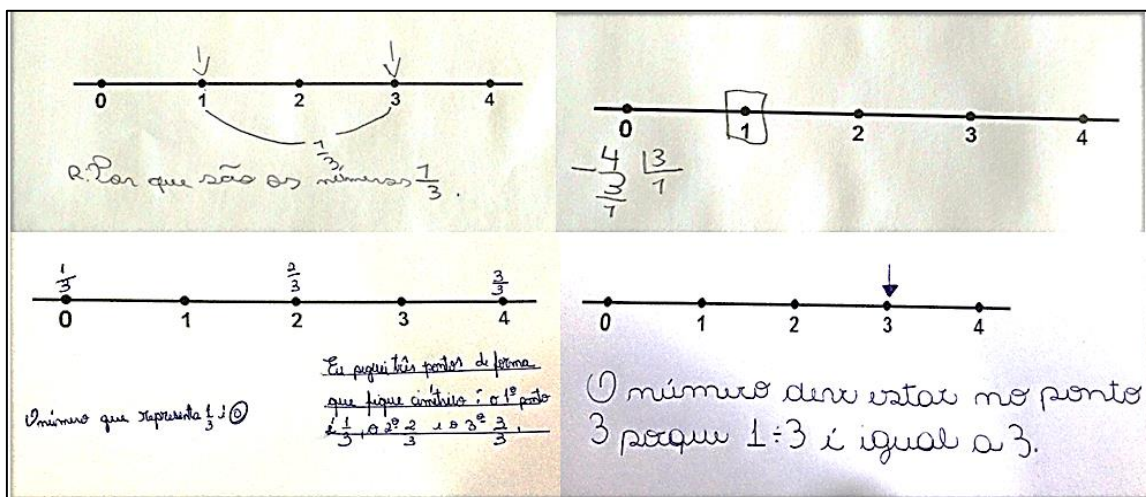 0 1 2 3 4
1/3
R. Por que são os números 1/3.
0 1 2 3 4
4 3
- 3 1
1
1/3 2/3 3/3
0 1 2 3 4
O número que representa 1/3 é 0
Eu peguei três pontos de forma
que fique cimétrico: o 1º ponto
é 1/3, o 2º 2/3 e o 3º 3/3.
0 1 2 3 4
O número deve estar no ponto
3 porque 1÷3 é igual a 3.